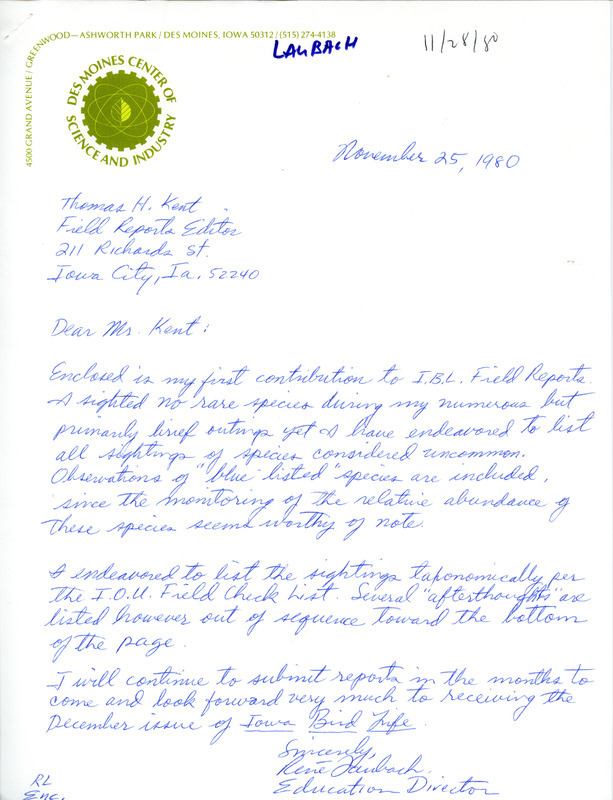 4500 GRAND AVENUE / GREENWOOD—ASHWORTH PARK / DES MOINES, IOWA 50312 / (515) 274-4138
LAUBACH
11/28/80
DES MOINES CENTER OF
SCIENCE AND INDUSTRY
November 25, 1980
Thomas H. Kent
Field Reports Editor
211 Richards St.
Iowa City, Ia. 52240
Dear Mr. Kent:
Enclosed is my first contribution to I.B.L. Field Reports.
I sighted no rare species during my numerous but
primarily brief outings yet I have endeavored to list
all sightings of species considered uncommon.
Observations of "blue listed" species are included,
since the monitoring of the relative abundance of
these species seems worthy of note.
I endeavored to list the sightings taxonomically per
the I.O.U. Field Check List. Several "afterthoughts" are
listed however out of sequence toward the bottom
of the page.
I will continue to submit reports in the months to
come and look forward very much to receiving the
December issue of Iowa Bird Life.
Sincerely,
René Laubach
Education Director
RL
Enc.